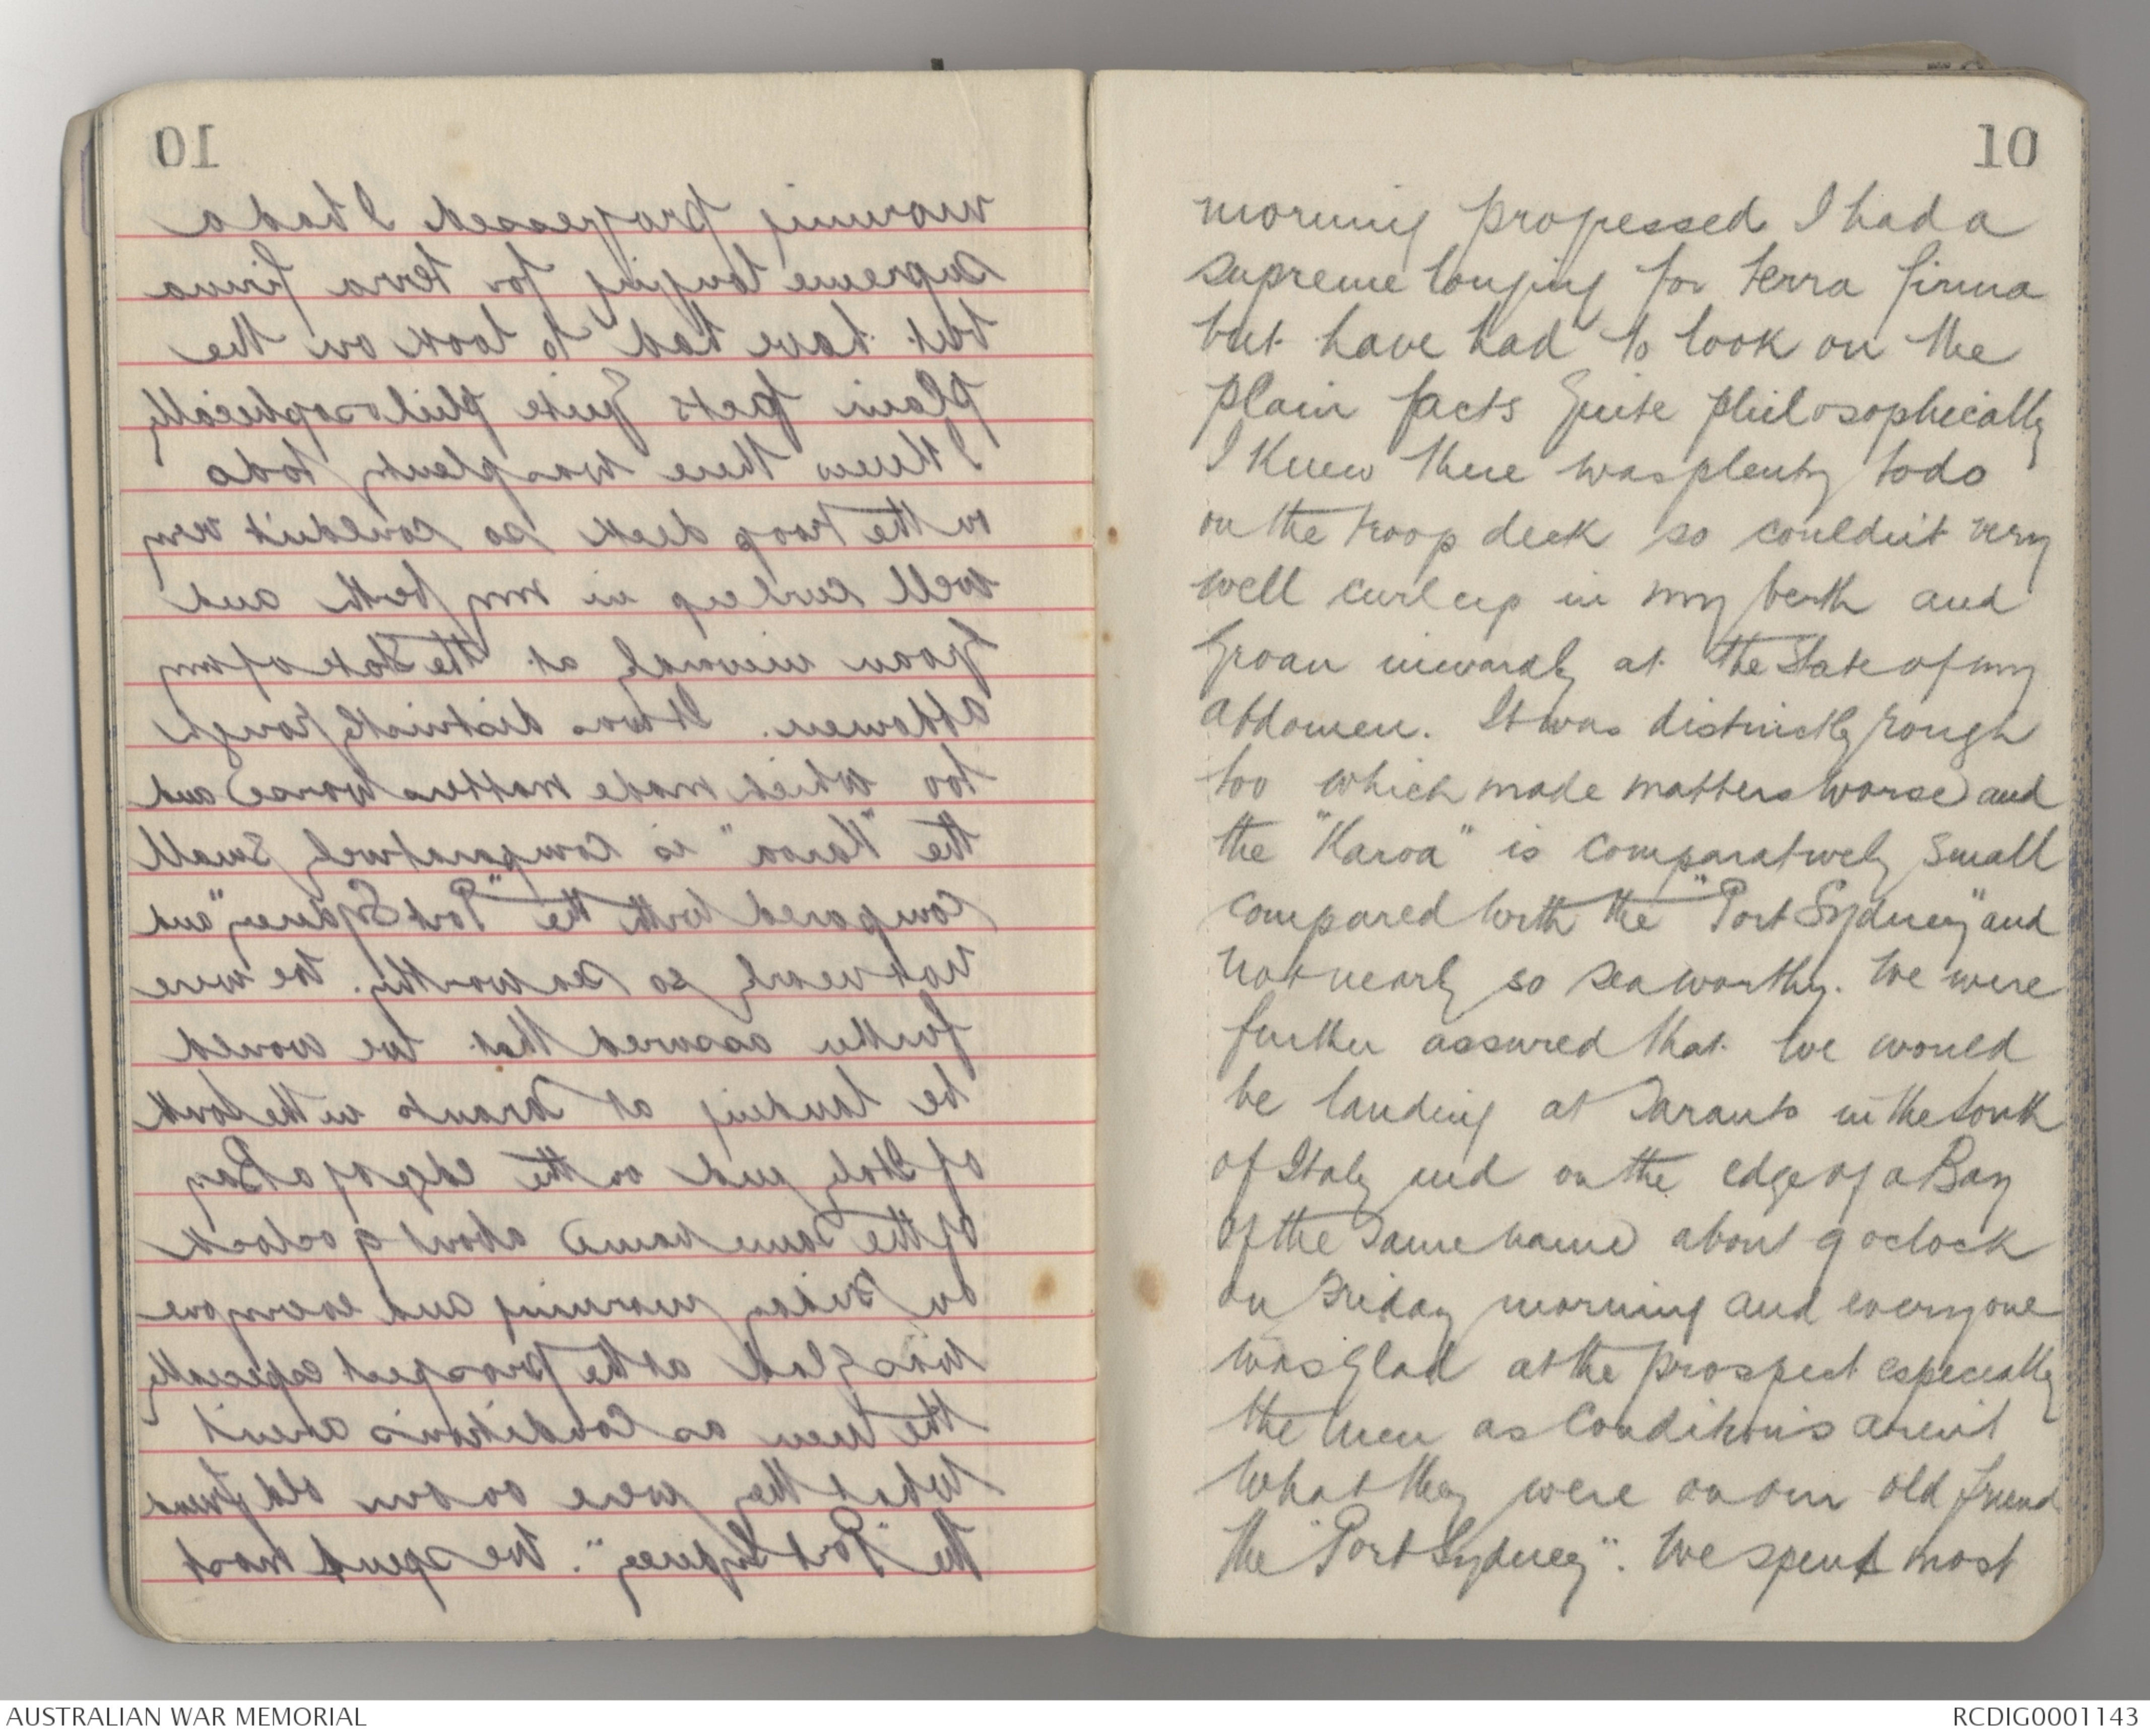 10
morning progressed I had a
supreme longing for terra firma
but have had to look on the
plain facts quite philosophically
I knew there was plenty to do
on the troop deck so couldn't very
well curl up in my berth and
groan inwardly at the state of my
abdomen. It was distinctly rough
too which made matters worse and
the "Karoa" is comparatively small
compared with the "Port Sydney" and
not nearly so seaworthy. We were
further assured that we would
be landing at Taranto in the South
of Italy and on the edge of a Bay
of the same name about 9 oclock
on Friday morning and everyone
was glad at the prospect especially
the men as conditions aren't
what they were on our old friend
the "Port Sydney". We spent most
AUSTRALIAN WAR MEMORIAL
RCDIG0001143